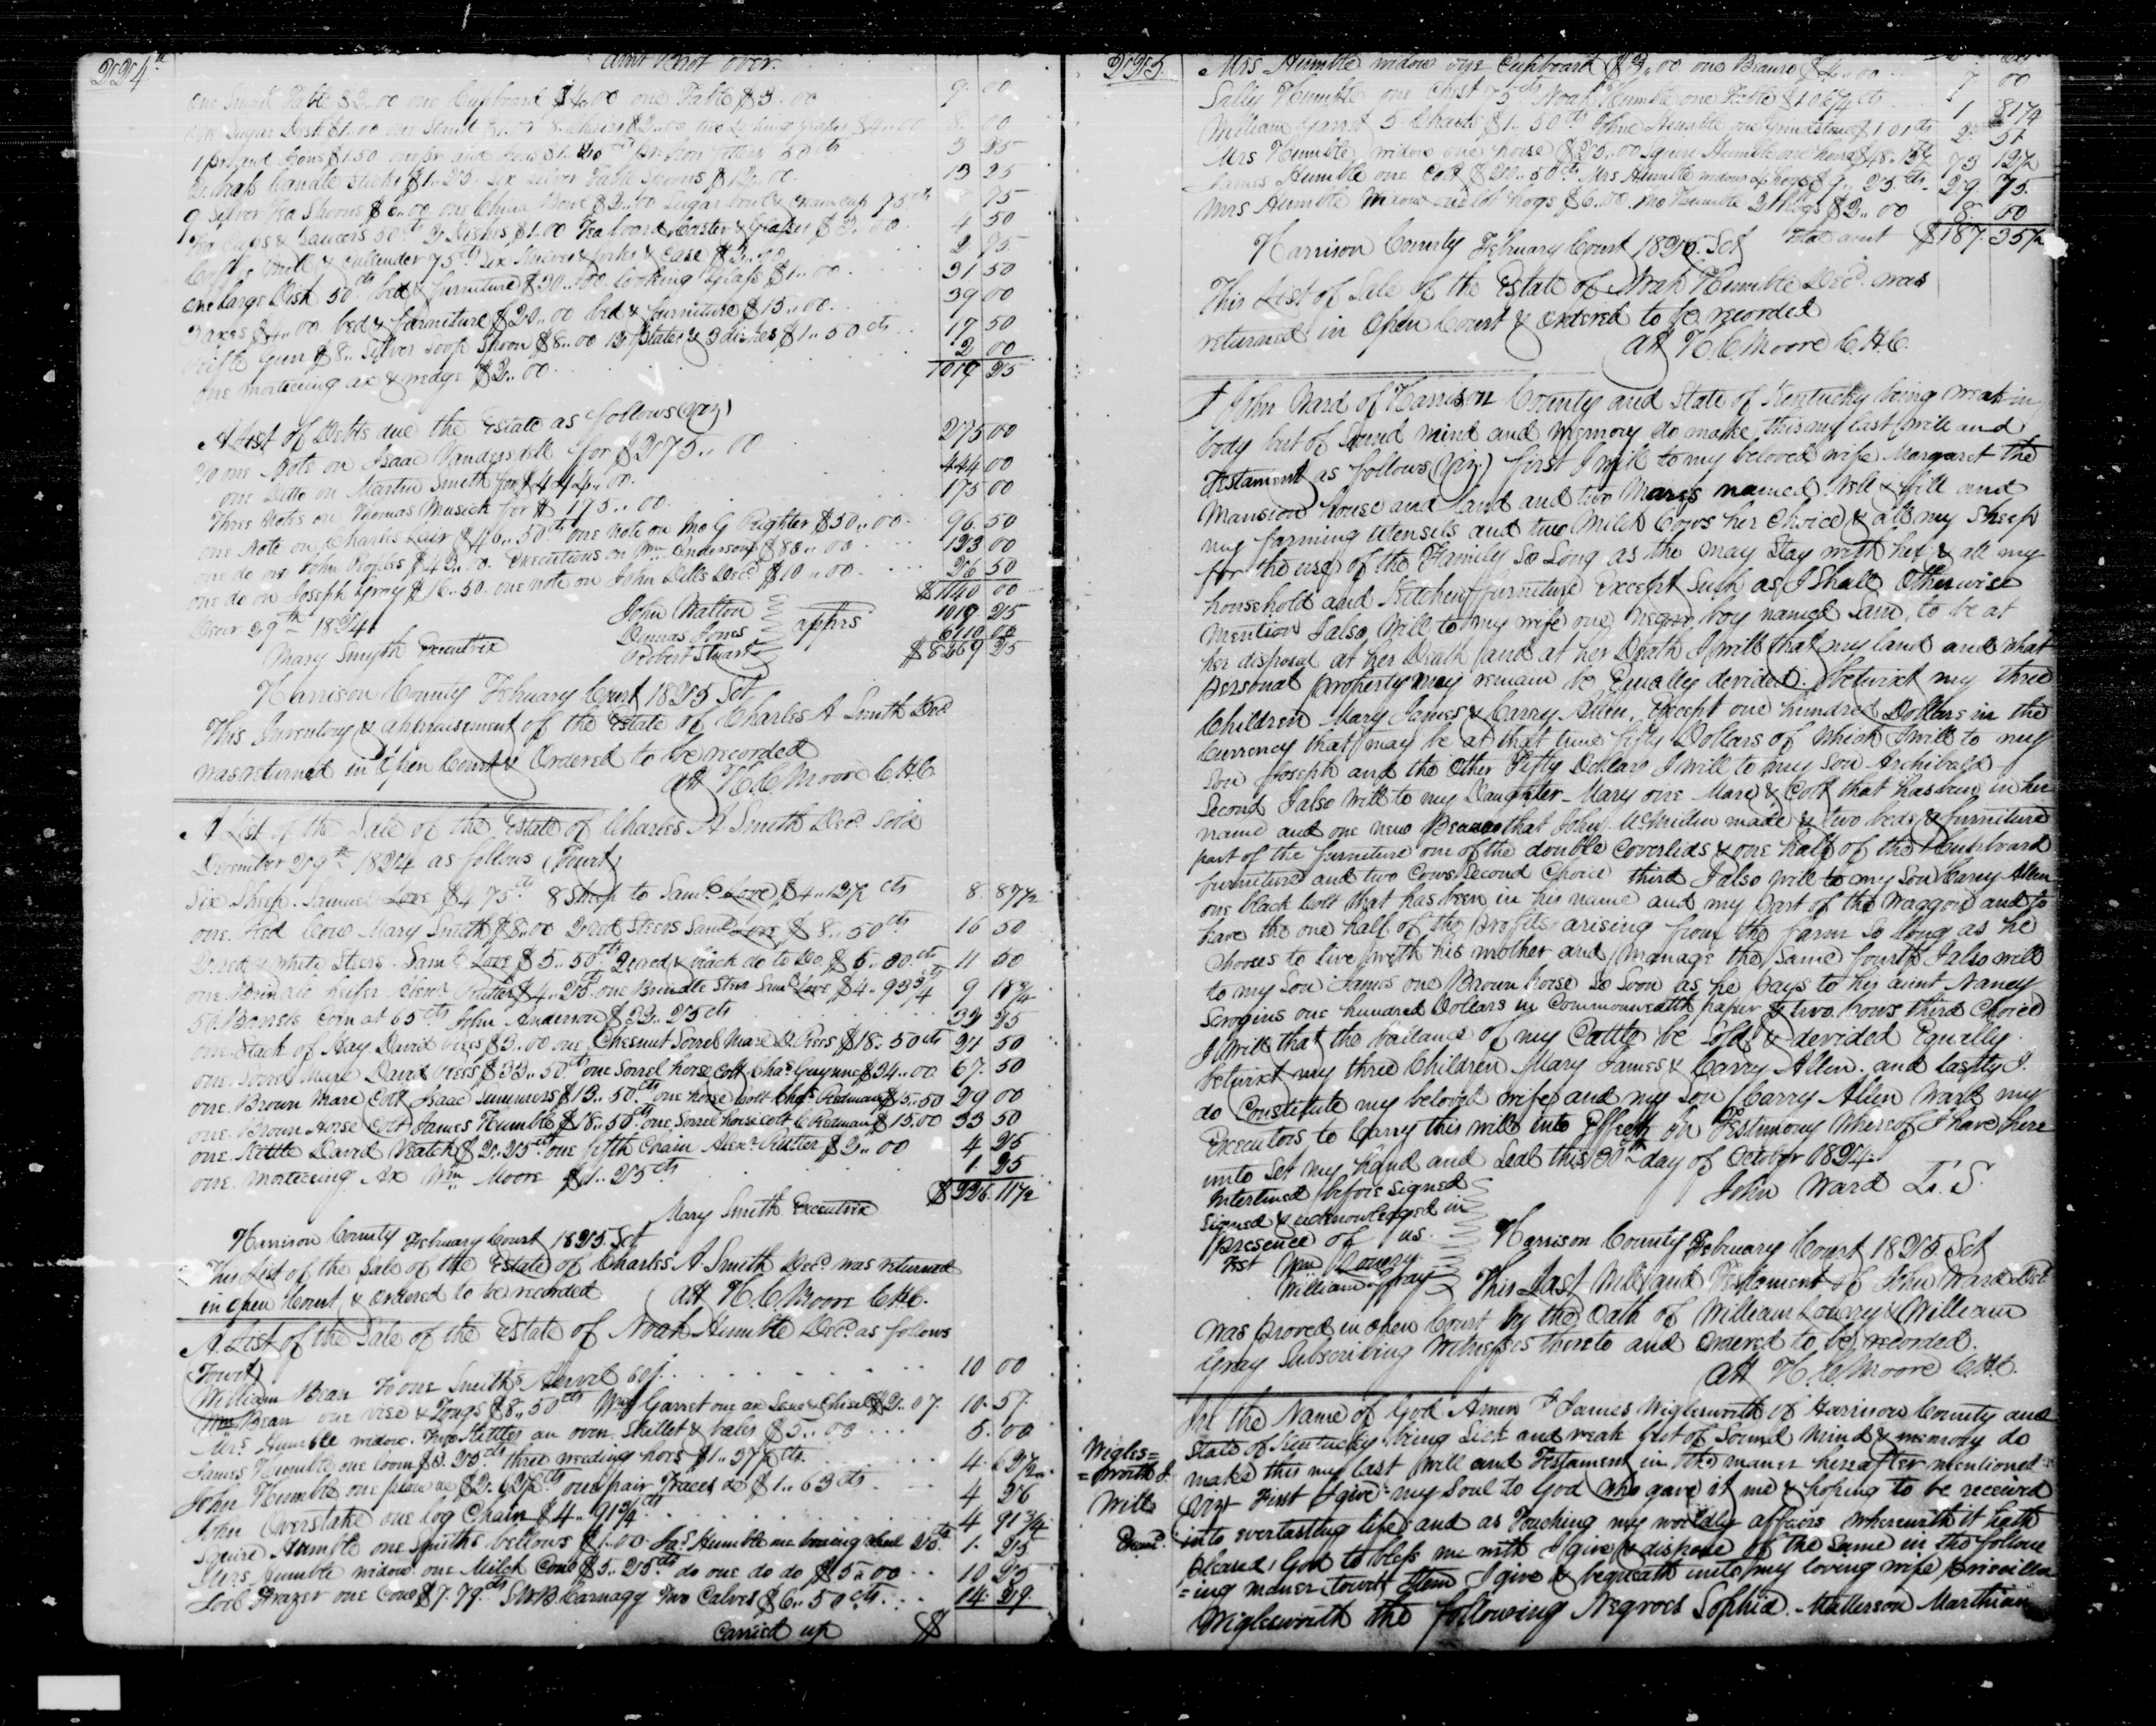 224th
amt brot over.
one Small Table $2.00 one Cupboard $4.00 one Table $3.00 9. 00
one Sugar Desk $1.00 one Stand 8 Chairs $2.00 two Looking glasses $4.00 8. 00
1 pr and Irons $1.50 one pr and Irons 50 cts 3 25
2 brass Candle Sticks $1..25. Six Silver Table Spoons $12..00 13 25
9 Silver Tea Spoons one China Bowl Sugar bowl & Cream cup 75 cts 75
Tea Cups & Saucers 50 cts 2 Dishes $1.00 Tea board Caster & glasses $3..00 4 50
Coffee Mill & Cullender 75 cts Six Knives & forks & Case $2..00 2 75
one large Dish 50 cts bed & furniture $30..00 Looking Glass $1..00 31 50
2 axes $4..00 bed & furniture $20..00 bed & furniture $15..00. 39 00
rifle gun $8.. Silver Soop Spoon $8..00 12 plates & 3 dishes $1..50 cts 17 50
one morticeing ax & wedge $2..00 2 00
1019 25
A List of Debts due the Estate as follows (viz)
To one Note on Isaac Vandersdell for $275..00 275 00
one Ditto on Martin Smith for $444..00. 444 00
Three Notes on Thomas Musick for $175..00. 175 00
one Note on Charles Lair $46..50 cts one note on Jno G Righter $50..00 96 50
one do on John Peoples $43..00. Executions on Wm Anderson $80..00 123 00
one do on Joseph Gray $16..50. one note on John Dills Decd $10..00 26 50
$1140 00
Decr 29th 1824 John Walton 1019 25
Dumas Jones apprs 6110 00
Mary Smyth Executrix Robert Stuart $8269 25
Harrison County February Court 1825 Sct
This Inventory & appraisement of the Estate of Charles A Smith Decd
was returned in Open Court & Ordered to be recorded
att H. C Moore C.H.C
A List of the Sale of the Estate of Charles A Smith Decd Sold
December 29th 1824 as follows (Towit)
Six Sheep. Samuel Love $4 75 cts 8 Sheep to Saml Love $4..12½ cts 8. 87½
one Red Cow Mary Smith $8.00 2 red Steers Saml Love $8..50 cts 16 50
2 red & white Steers. Saml Love $5..50 cts 2 red & black do to Do. $6..00 cts 11 50
one Brindle heifer Alexr Rutter $4..25 cts one Brindle Steer Saml Love $4..93¾ 9 18¾
50 Barrels Corn at 65 cts John Anderson $32..25 cts 32 25
one Stack of Hay David Rees $3..00 one Chesnut Sorrel Mare D. Rees $18..50 cts 21 50
one Sorrel Mare David Rees $33..50 cts one Sorrel horse Colt Chas Guynne $34..00 67. 50
one Brown Mare Colt Isaac Summers $13..50 cts one horse Colt Chas Redman $15..50 29 00
one Brown Horse Colt James Humble $18..50 cts one Sorrel horse colt C Redman $15.00 33 50
one Kettle David Veatch $2..25 cts one fifth Chain Alexr Rutter $2..00 4 25
one Morticeing Ax Wm Moore $1..25 cts 1. 25
$226. 11½
Mary Smith Executrix
Harrison County February Court 1825. Sct
This List of the Sale of the Estate of Charles A Smith Decd was returned
in open Court & ordered to be recorded att H. C Moore C.H.C.
A List of the Sale of the Estate of Noah Humble Decd as follows
Towit)
William Bean To one Smiths Anvil 10 00
Wm Bean one vise & Tongs $8..50 cts Wm Garret one ax Saw & Chisel $2..07 10. 57.
Mrs Humble widow. Two Kettles an oven Skillet & bales $5..00 5. 00
James Humble one loom $3.25 cts three weeding hoes $1..37½ cts 4. 62½
John Humble one plow $2.62½ cts one pair Traces do $1..63 cts 4 26
John Overstake one log Chain $4..91¾ cts 4 91¾
Squire Humble one Smiths bellows $1.00 Jas Humble one boring wheel 25 cts 1. 25
Mrs Humble widow one Milch Cow $5..25 cts do one do do $5..00 10 25
Loeb Frazer one Cow $7.79 cts S W B Carnagy Two Calves $6..50 cts. 14. 29.
Carried up $
225.
Mrs Humble widow one Cupboard $3..00 one Beauro $4..00 7 00
Sally Humble one Chest 75 cts Noah Humble one Table $1 06¼ cts 1 81¼
William Garret 5 Chairs $1..50 cts John Humble one Grindstone $1 01 cts 2. 51
Mrs Humble widow one horse $25..00 Squire Humble one horse $48..12½ 73 12½
James Humble one Colt $20..50 cts Mrs Humble widow 4 hogs $9..25 cts 29. 75.
Mrs Humble Widow hogs $6..00. Jno Humble 2 hogs $2..00 8. 00
Total amt $187. 35½
Harrison County February Court 1825. Sct
This List of Sale of the Estate of Noah Humble Decd was
returned in Open Court & Ordered to be recorded
att H. C Moore C.H.C.
I John Ward of Harrison County and State of Kentucky being weak in
body but of Sound mind and memory do make this my last Will and
Testament as follows (viz.) first I Will to my beloved wife Margaret the
Mansion house and land and two Mares named Nell & Fill and
my farming utensils and two Milch Cows her Choice & all my Sheep
for the use of the Family So Long as the may Stay with her & all my
household and Kitchen furniture Except Such as I Shall Otherwise
Mention I also Will to my wife one Negro boy named Sam, to be at
her disposal at her Death and at her Death I will that my land and what
personal property may remain be Equally devided. betwixt my three
Children Mary James & Carry Allen, Except one hundred Dollars in the
Currency that may be at that time fifty Dollars of Which I will to my
Son Joseph and the Other Fifty Dollars I will to my Son Archibald
Second I also Will to my Daughter Mary one Mare & Colt that has been in her
name and one new Beauro that John McMillin made & two beds & furniture
part of the furniture one of the double Coverlids & one half of the Cupboard
furniture and two Cows Second Choice third I also Will to my Son Carry Allen
one black Colt that has been in his name and my part of the Waggon and to
have the one half of the profits arising from the farm So long as he
Chooses to live with his mother and Manage the Same fourth I also will
to my Son James one Brown horse So Soon as he pays to his aunt Nancy
Scrogins one hundred Dollars in Commonwealth paper & two Cows third Choice
I Will that the ballance of my Cattle be Sold & devided Equally
betwixt my three Children Mary James & Carry Allen. and lastly I
do Constitute my beloved wife and my Son Carry Allen Ward my
Executors to Carry this will into Effect In Testimony Whereof I have here
unto Set my hand and Seal this 30th day of October 1824.
Interlined before signed John Ward L. S.
Signed & acknowledged in
presence of us.
Test Wm Lowry
William Gray
Harrison County February Court 1825. Sct
This Last Will and Testament of John Ward Decd
was proved in open Court by the Oath of William Lowry & William
Gray Subscribing Witnesses thereto and Ordered to be recorded.
att H. C Moore C.H.C.
Wigles=
=worth J.
Will
Examd.
In the Name of God Amen I James Wiglesworth of Harrison County and
State of Kentucky being Sick and weak but of Sound Mind & memory do
make this my last Will and Testament in the maner hereafter mentioned
Viz First I give my Soul to God who gave it me & hoping to be received
into everlasting life, and as Touching my worldly affairs wherewith it hath
pleased God to bless me with I give & dispose of the Same in the follow
=ing maner towit Item I give & bequeath unto my loving wife Priscilla
Wiglesworth the following Negroes Sophia. Matterson Marthian